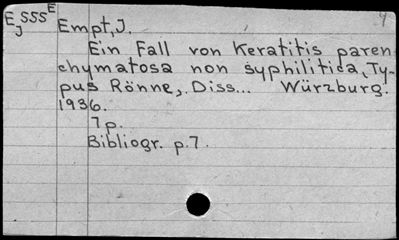 E SSS E
J
Empt, J.
Ein Fall von Keratitis paren-
chymatosa non syphilitica, Ty-
pus Rönne, Diss... Würzburg.
1936.
7 p.
Bibliogr. p. 7.